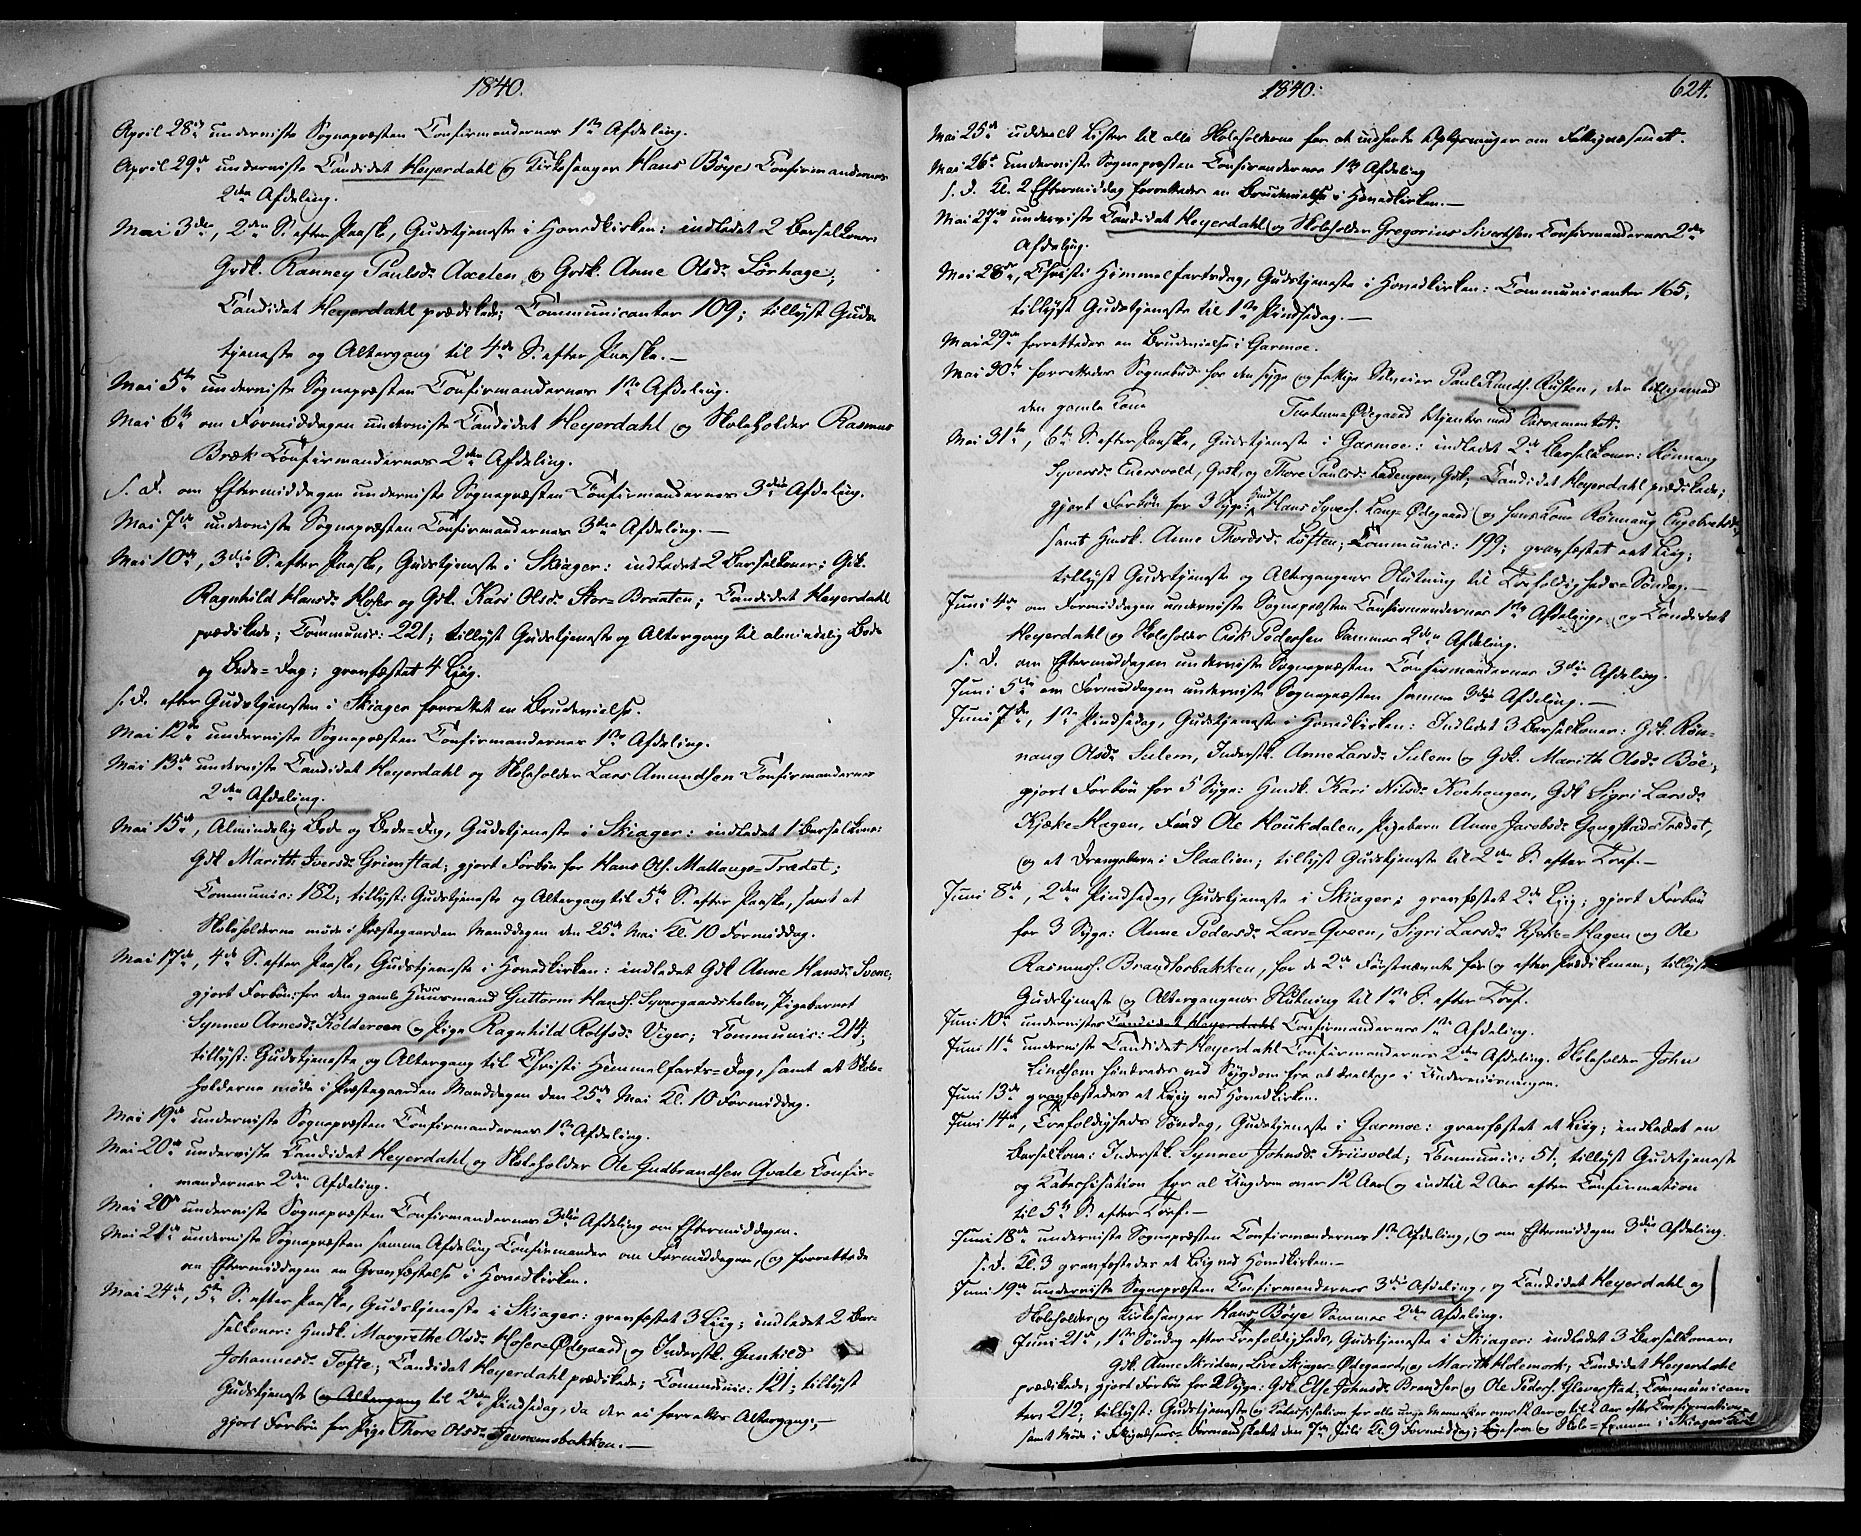 1840.
April 28de underviste Sognepræsten Confirmandernes 1ste Afdeling.
April 29de underviste Candidat Heyerdahl og Kirkesanger Hans Böye Confirmandernes
2den Afdeling.
Mai 3die, 2den S. efter Paaske, Gudstjeneste i Hovedkirken: indledet 2 Barselkoner:
Grdk. Ranney Paulsdr Axelen, og Grdk. Anne Olsdr Sörhage;
Candidat Heyerdahl prædikede; Communicanter 109; tillyst Guds-
tjeneste og Altergang til 4de S. efter Paaske.—
Mai 5te underviste Sognepræsten Confirmandernes 1ste Afdeling.
Mai 6te om Formiddagen underviste Candidat Heyerdahl og Skoleholder Rasmus
Bræk Confirmandernes 2den Afdeling.
s. d. om Eftermiddagen underviste Sognepræsten Confirmandernes 3die Afdeling.
Mai 7de underviste Sognepræsten Confirmandernes 3die Afdeling.—
Mai 10de, 3die S. efter Paaske, Gudstjeneste i Skiager: indledet 2 Barselkoner: Gk.
Ragnhild Hansdr Hoser og Gdk. Kari Olsdr Stor-Branten; Candidat Heyerdahl
prædikede; Communic: 221; tillyst Gudstjeneste og Altergang til almindelig Bods
og Bede-Dag; gravfæstet 4 Liig.
s. d. efter Gudstjenesten i Skiager forrettet en Brudevielse.
Mai 12te underviste Sognepræsten Confirmandernes 1ste Afdeling.
Mai 13de underviste Candidat Heyerdahl og Skoleholder Lars Amundsen Confirmandernes
2den Afdeling.
Mai 15de, Almindelig Bods og Bede-Dag, Gudstjeneste i Skiager: indledet 1 Barselkone:
Gdk Marith Iversdr Grimstad; gjort Forbön for Hans Ols. Mattangs-Trædet;
Communic: 182; tillyst: Gudstjeneste og Altergang til 5te S. efter Paaske, samt at
Skoleholderne möde i Præstegaarden Manddagen den 25de Mai Kl. 10 Formiddag.
Mai 17de, 4de S. efter Paaske, Gudstjeneste i Hovedkirken: indledet Gdk Anne Hansdr Svene;
gjort Forbön for den gamle Huusmand Guttorm Hansf. Syvergaardshelen, Pigebarnet
Synnev Arnesdr Kolderoen og Pige Ragnhild Rolfsdr Viger; Communic: 214;
tillyst: Gudstjeneste og Altergang til Christi Hemmelfarts-Dag, samt at Skole-
holderne möde i Præstegaarden Manddagen den 25de Mai Kl. 10 Formiddag.
Mai 19de underviste Sognepræsten Confirmandernes 1ste Afdeling.
Mai 20de underviste Candidat Heyerdahl og Skoleholder Ole Gudbrandsen Qvale Confir-
mandernes 2den Afdeling.
Mai 20de underviste Sognepræsten Confirmandernes 3die Afdeling om Eftermiddagen.
Mai 21de underviste Sognepræsten samme Afdeling Confirmander om Formiddagen, og forrettede
om Eftermiddagen en Gravfæstelse i Hovedkirken.
Mai 24de, 5te S. efter Paaske, Gudstjeneste i Skiager: gravfæstet 3 Liig; indledet 2 Bar-
selkoner: Hmdk. Margrethe Olsdr Hoser-Ödegaard og Inderstk. Gunhild
Johannesdr Tofte; Candidat Heyerdahl prædikede; Communic: 121; tillyst
Gudstjeneste og Altergang til 2den Pindsedag, da der ei forrettes Altergang;—
gjort Forbön for Pige Thore Olsdr.—
1840.
624.
Mai 25de uddeelt Lister til alle Skoleholderne for at indhente Oplysninger om Fattigvæsenet.
Mai 26de underviste Sognepræsten Confirmandernes 1ste Afdeling
s. d. Kl. 2 Eftermiddag forrettedes en Brudevielse i Hovedkirken.—
Mai 27de underviste Candidat Heyerdahl og Skoleholder Gregorius Sivertsen Confirmandernes 2den
Afdeling.
Mai 28de, Christi Himmelfartsdag, Gudstjeneste i Hovedkirken: Communicanter 165;
tillyst Gudstjeneste til 1ste Pindsedag.—
Mai 29de forrettedes en Brudevielse i Garmoe.
Mai 30te forrettedes Sognebud for den syge og fattige Paul Knuds. Rusten, der tilligemed
den gamle Kone Ödegaard betjentes med Sacramentet.
Mai 31te, 6te S. efter Paaske, Gudstjeneste i Garmoe: indledet 2de Barselkoner: Rönnaug
Syversdr, Grdk, og Thore Paulsdr Ladengen, Gdk; Candidat Heyerdahl prædikede;
gjort Forbön for 3 Syge: Hans Syvers. Lang-Ödegaard og hans Kone Rönnaug Engebretsdr,
samt Hmdk. Anne Thordsdr Löften; Communic: 199; gravfæstet eet Liig;
tillyst Gudstjeneste og Altergangens Slutning til Trefoldigheds-Söndag.—
Juni 4de om Formiddagen underviste Sognepræsten Confirmandernes 1ste Afdeling, og Candidat
Heyerdahl og Skoleholder Erik Pedersen Sammes 2den Afdeling.
s. d. om Eftermiddagen underviste Sognepræsten Confirmandernes 3die Afdeling.
Juni 5te om Formiddagen underviste Sognepræsten samme 3die Afdeling.—
Juni 7de, 1ste Pindsedag, Gudstjeneste i Hovedkirken: Indledet 3 Barselkoner: Gk. Rön-
naug Olsdr Sulem, Inderstk. Anne Larsdr Sulem og Gdk. Marith Olsdr Böe;
gjort Forbön for 5 Syge: Hmdk. Kari Nilsdr Korhaugen, Gdk Sigri Larsdr
Kjæke-Hagen, Ole Höukdalen, Pigebarn Anne Jacobsdr Gangstads Trædet,
og et Drengebarn i Slaalien; tillyst Gudstjeneste til 2den S. efter Tref.—
Juni 8de, 2den Pindsedag, Gudstjeneste i Skiager; gravfæstet 2de Liig; gjort Forbön
for 3 Syge: Anne Pedersdr Lars-Qveen, Sigri Larsdr Kjæke-Hagen og Ole
Rasmuss. Brandsarbakken, for de 2de Förstnævnte för og efter Prædikenen; tillyst
Gudstjeneste og Altergangens Slutning til 1ste S. efter Tref.
Juni 10de undervistes Candidat Heyerdahl Confirmandernes 1ste Afdeling.
Juni 11te underviste Candidat Heyerdahl Confirmandernes 2den Afdeling. Skoleholder John
Lindsem hindredes ved Sygdom fra at deeltage i Underviisningen.
Juni 13de gravfæstedes et Liig ved Hovedkirken.
Juni 14de, Trefoldigheds Söndag, Gudstjeneste i Garmoe: gravfæstet et Liig; indledet en
Barselkone: Inderstk. Synnev Johnsdr Friisvold; Communic: 51; tillyst Gudstjeneste
og Katechisation for al Ungdom over 12 Aar og indtil 2 Aar efter Confirmation
til 5te S. efter Tref.—
Juni 18de underviste Sognepræsten Confirmandernes 1ste Afdeling, og om Eftermiddagen 3die Afdeling.
s. d. Kl. 3 gravfæstedes et Liig ved Hovedkirken.—
Juni 19de underviste Sognepræsten Confirmandernes 3die Afdeling, og Candidat Heyerdahl og
Skoleholder og Kirkesanger Hans Böye Sammes 2den Afdeling.
Juni 21de, 1ste Söndag efter Trefoldighed, Gudstjeneste i Skiager: indledet 3 Barselkoner:
Gdk. Anne Skriden, Live Skjager-Ödegaard og Marith Holemork; Candidat Heyerdahl
prædikede; gjort Forbön for 2 Syge: Gdk. Else Johnsdr og Ole Peders. Gloverstad; Communican-
ter: 212; tillyst: Gudstjeneste og Katechisation for alle unge Mennesker over 12 Aar og til 2 Aar efter Confirmation
samt Möde i Formandskabet den 7de Juli Kl. 9 Formiddag; ligesom og Skole-Examen i Skiager